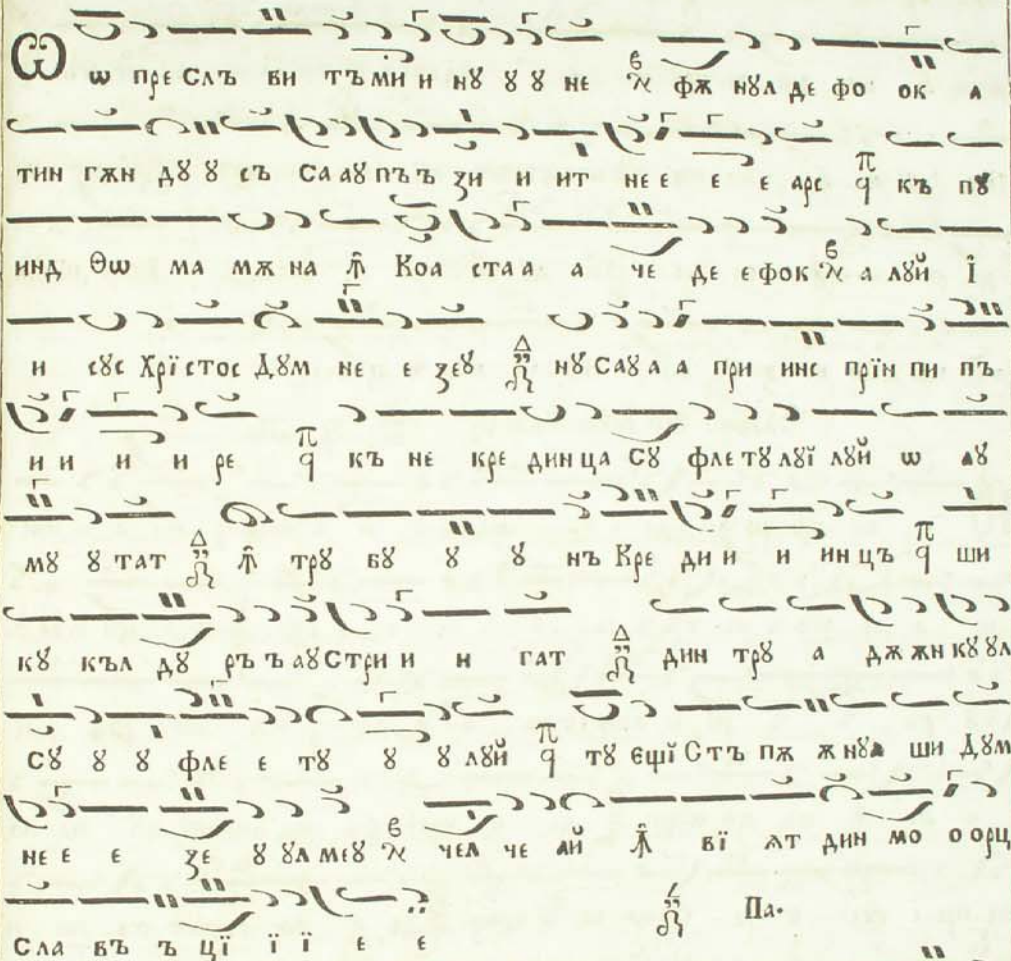 Ѡ ѡ пре слъ ви тъ ми и нȣ ȣ ȣ не фѫ нȣл де фо ок а
тин гѫн дȣ ȣ съ Са аȣ пъ ъ зи и ит не е е е е арс къ пȣ
инд Ѳѡ ма мѫ на ꙟ Коа ста а а а че де е фок а лȣй І
и сȣс Хрі стос Дȣм не е зеȣ нȣ Саȣ а а при инс прїн пи пъ
и и и и ре къ не кре дин ца Сȣ фле тȣ лȣї лȣй ѡ аȣ
мȣ ȣ тат ꙟ трȣ бȣ ȣ ȣ нъ Кре ди и и ин цъ ши
кȣ къл дȣ ръ ъ аȣ Стри и и гат дин трȣ а дѫ ѫн кȣ ȣл
Сȣ ȣ ȣ фле е тȣ ȣ ȣ лȣй тȣ ещї Стъ пѫ ѫ нȣл ши Дȣм
не е е е зе ȣ ȣл меȣ чел че ай ꙟ вї ѧт дин мо о орц
Сла въ ъ цї ї ї е е Па.